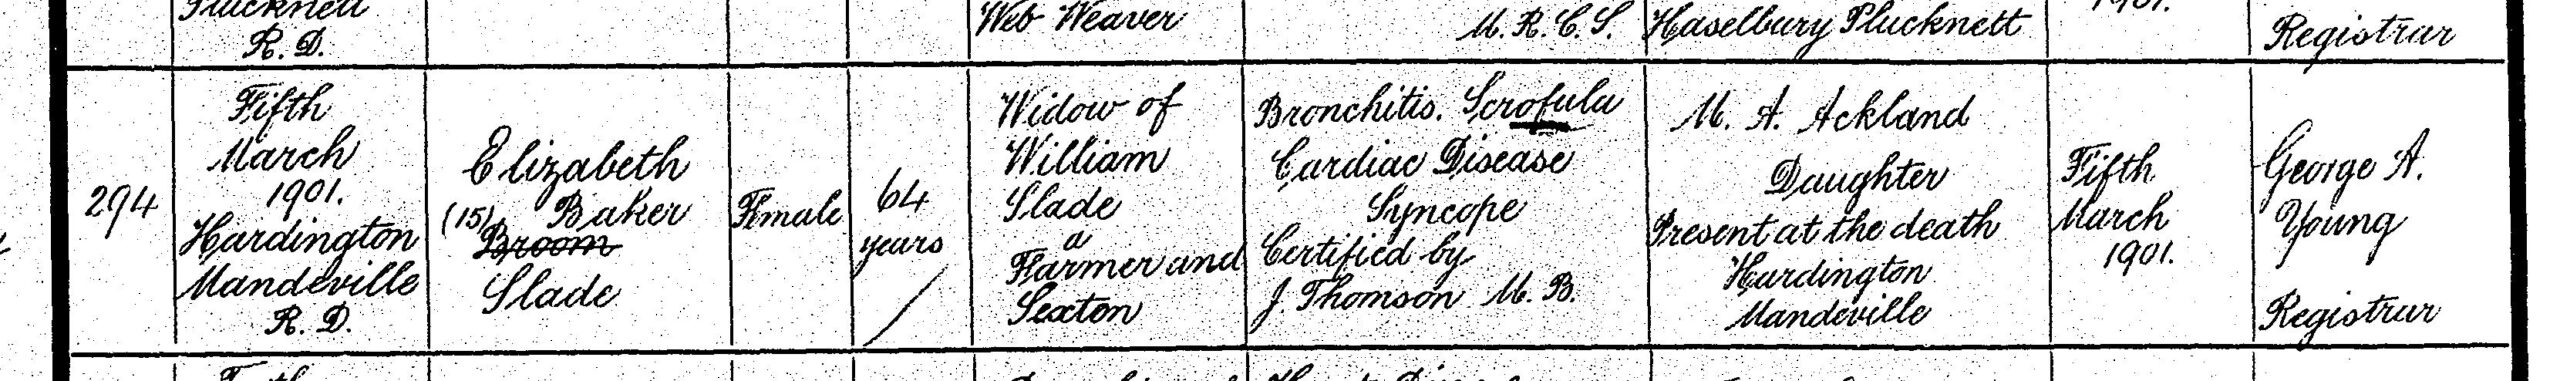 Plucknett
R. D.
Web Weaver
M. R. C. S.
Haselbury Plucknett
1901.
Registrar
294
Fifth
March
1901.
Hardington
Mandeville
R. D.
Elizabeth
(15) Baker
Broom
Slade
Female
64
years
Widow of
William
Slade
a
Farmer and
Sexton
Bronchitis. Scrofula
Cardiac Disease
Syncope
Certified by
J. Thomson M. B.
M. A. Ackland
Daughter
Present at the death
Hardington
Mandeville
Fifth
March
1901.
George A.
Young
Registrar